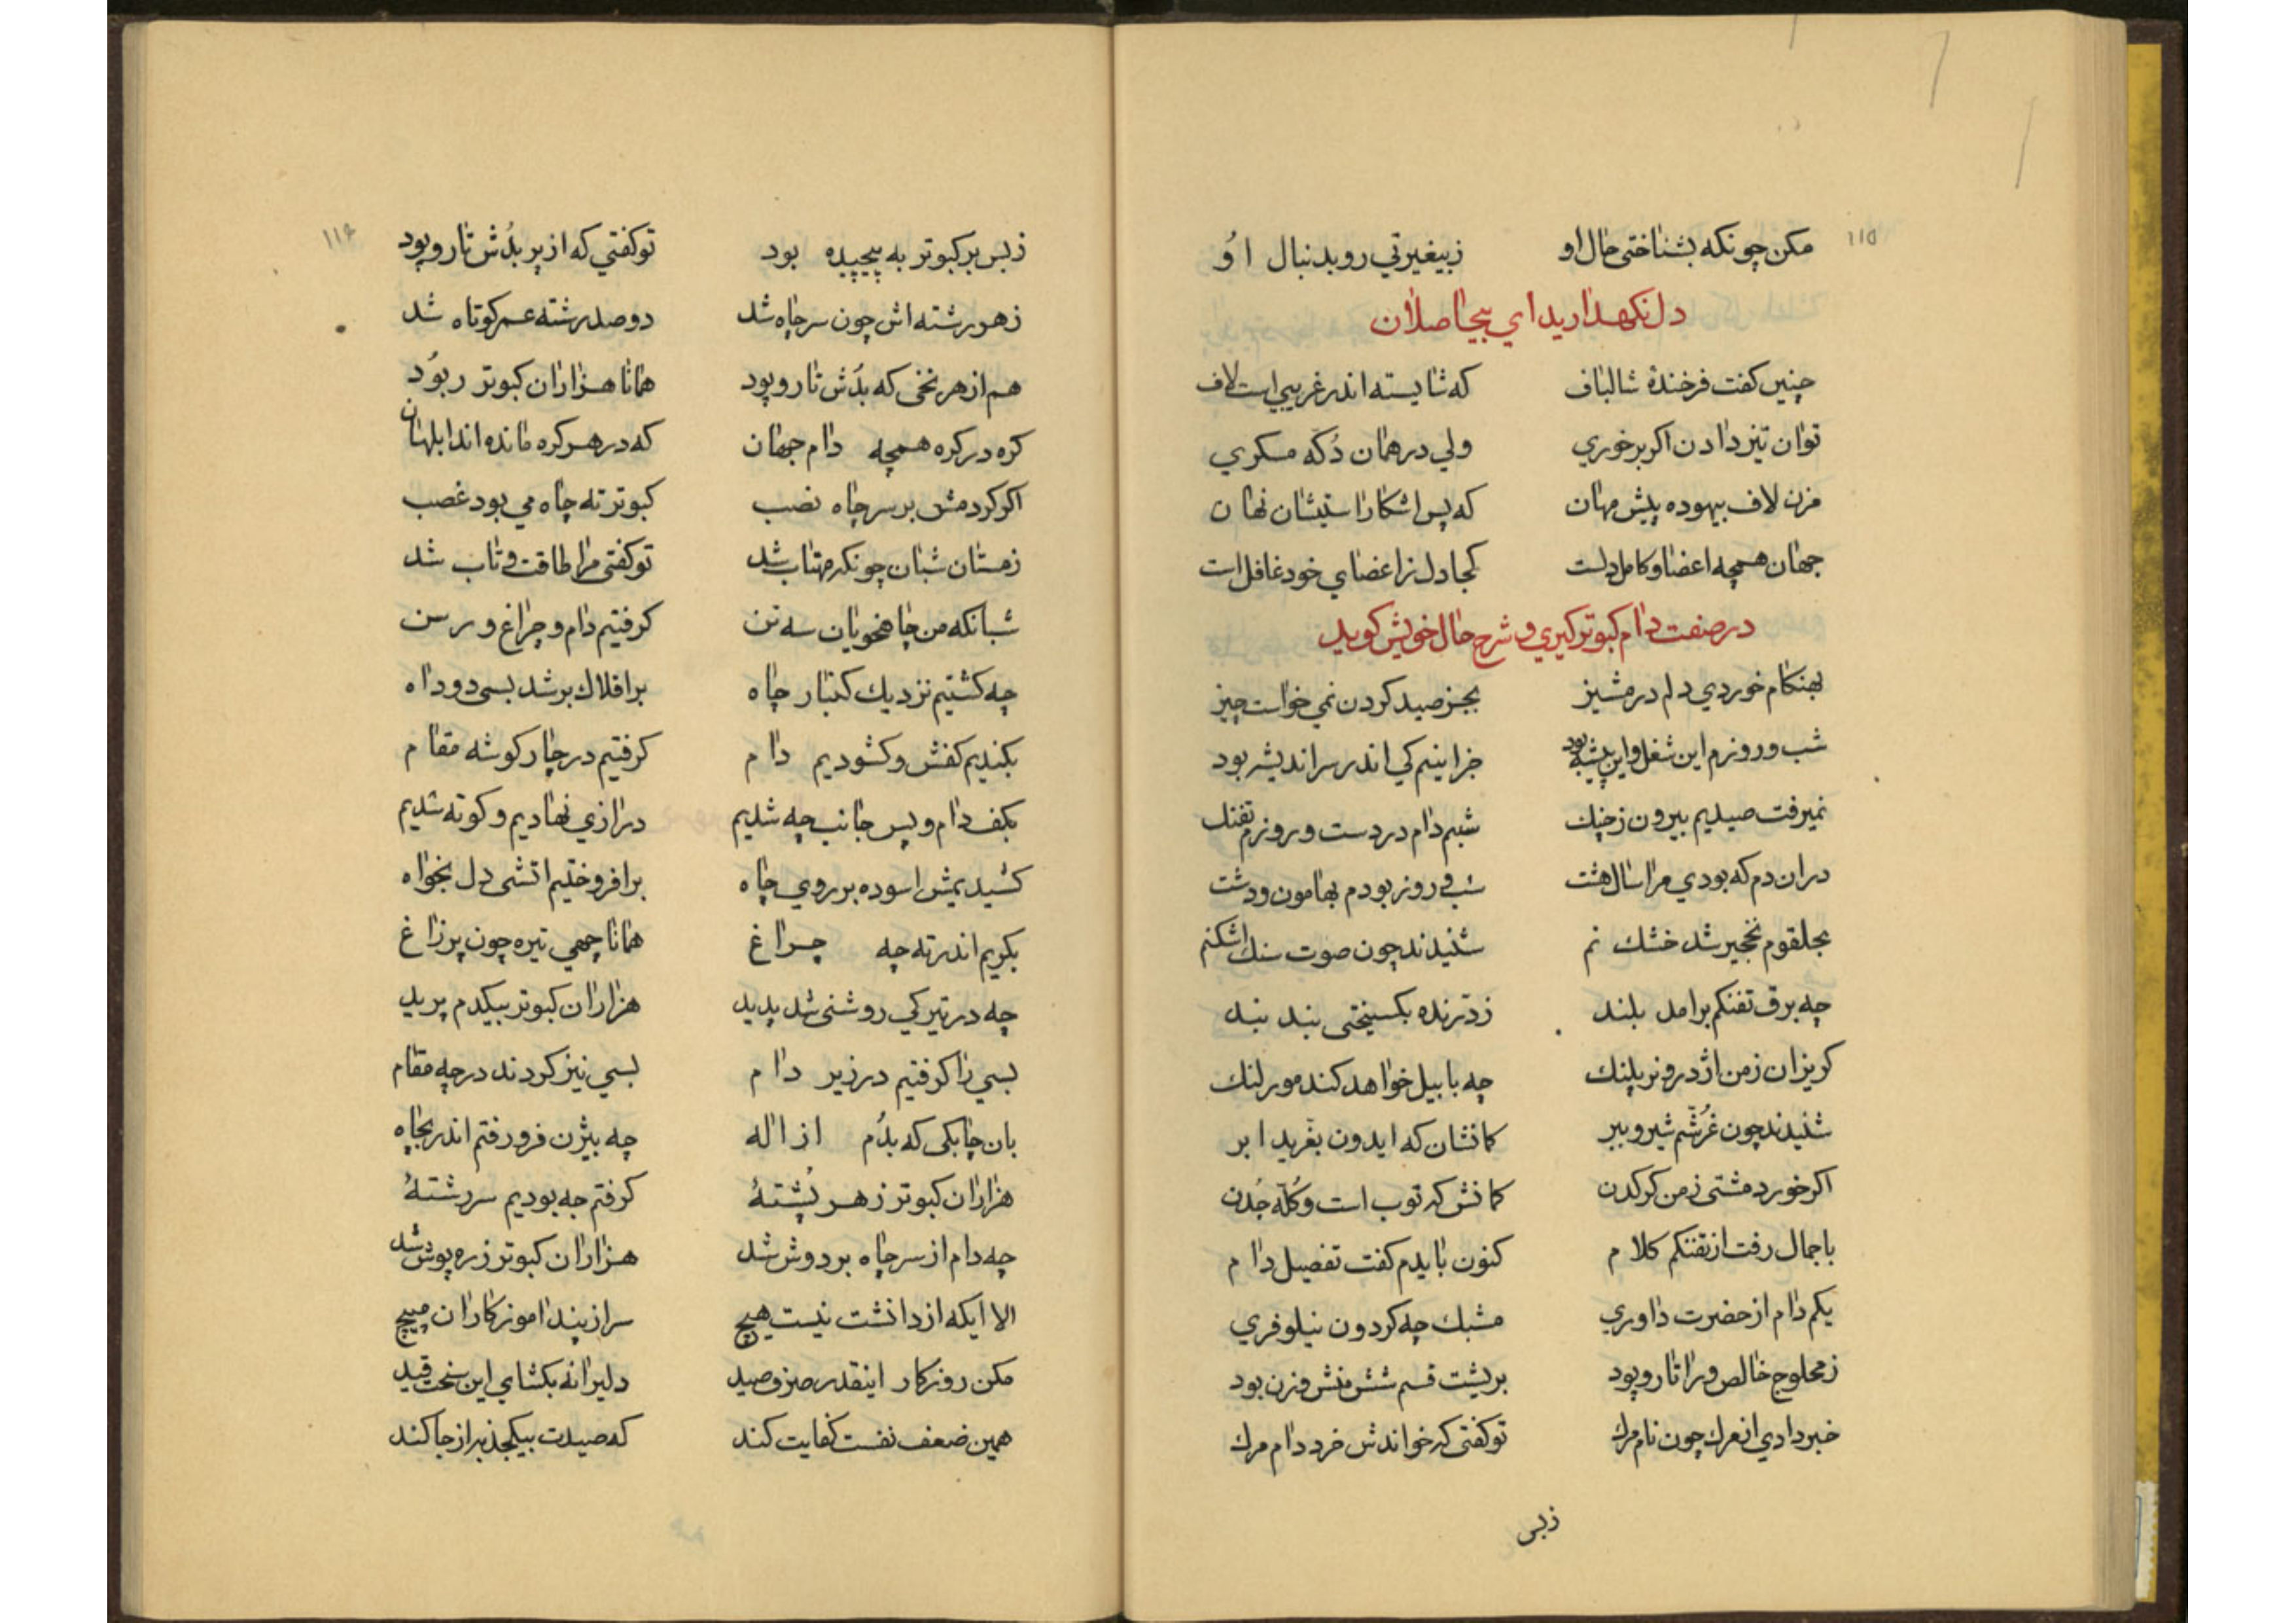 ۱۱۵
مکن چونکه بشناختی حال او زبیغیرتی رو بدنبال اوُ
دل نکهدارید ای بیحاصلان
چنین کفت فرخندهٔ شالباف که شایسته اندر غریبی است لاف
توان تیز دادن اکر بر خوری ولی در همان دُکه مسکری
مزن لاف بیهوده پیش مهان که پس اشکاراستیشان نهان
جهان همچه اعضا و کامل دلست کجا دل ز اعضای خود غافل است
در صفت دام کبوتر کیری و شرح حال خویش کوید
بهنکام خوردی دلم در مشیز بجز صید کردن نمی خواست چیز
شب و روزم این شغل و این پیشه بود جز اینم کی اندر سر اندیشه بود
نمیرفت صیدیم بیرون ز چنک شبم دام در دست و روزم تفنک
دران دم که بودی مرا سال هشت شب و روز بودم بهامون و دشت
بحلقوم نخجیر شد خشک نم شنیدند چون صوت سنک اشکنم
چه برق تفنکم برامد بلند ز درنده بکسیختی بند بند
کریزان ز من اژدر و نر پلنک چه با پیل خواهد کند مور لنک
شنیدند چون غُرّشم شیر و ببر کمانشان که ایدون بغرید ابر
اکر خورد مشتی ز من کرکدن کمانش که توب است و کلّه چُدن
باجمال رفت از تفنکم کلام کنون بایدم کفت تفصیل دام
یکم دام از حضرت داوری مشبک چه کردون نیلوفری
ز محلوج خالص ورا تار و پود بریشت قسم شش منش وزن بود
خبر دادی از مرک چون نام مرک تو کفتی که خواندش خرد دام مرک
زبس
۱۱۶
زبس بر کبوتر به پیچیده بود تو کفتی که از پر بُدش تار و پود
ز هر رشته اش چون سر چاه شد دو صد رشته عمر کوتاه شد
هم از هر نخی که بُدش تار و پود همانا هزاران کبوتر ربوُد
کره در کره همچه دام جهان که در هر کره مانده اند ابلهان
اکر کردمش بر سر چاه نصب کبوتر ته چاه می بود غصب
زمستان شبان چونکه مهتاب شد تو کفتی مرا طاقت و تاب شد
شبانکه من چاهخویان سه تن کرفتیم دام و چراغ و رسن
چه کشتیم نزدیک کنبار چاه بر افلاک بر شد بسی دود اه
بکندیم کفش و کشودیم دام کرفتیم در چار کوشه مقام
بکف دام و پس جانب چه شدیم درازی نهادیم و کوته شدیم
کشیدیمش اسوده بر روی چاه برافروختیم اتشی دل بخواه
بکریم اندر ته چه چراغ همانا چهی تیره چون پر زاغ
چه در تیرکی روشنی شد پدید هزاران کبوتر بیکدم پرید
بسی را کرفتیم در زیر دام بسی نیز کردند در چه مقام
بان چابکی که بدُم از اله چه بیژن فرو رفتم اندر بچاه
هزاران کبوتر ز هر پُشتهٔ کرفتم چه بودیم سر رشتهٔ
چه دام از سر چاه بر دوش شد هزاران کبوتر زره پوش شد
الا ایکه از دانشت نیست هیچ سر از پند اموزکاران مپیچ
مکن روزکار اینقدر صرف صید دلیرانه بکشای این سخت قید
همین ضعف نفست کفایت کند که صیدت بیکجذبه از جا کند